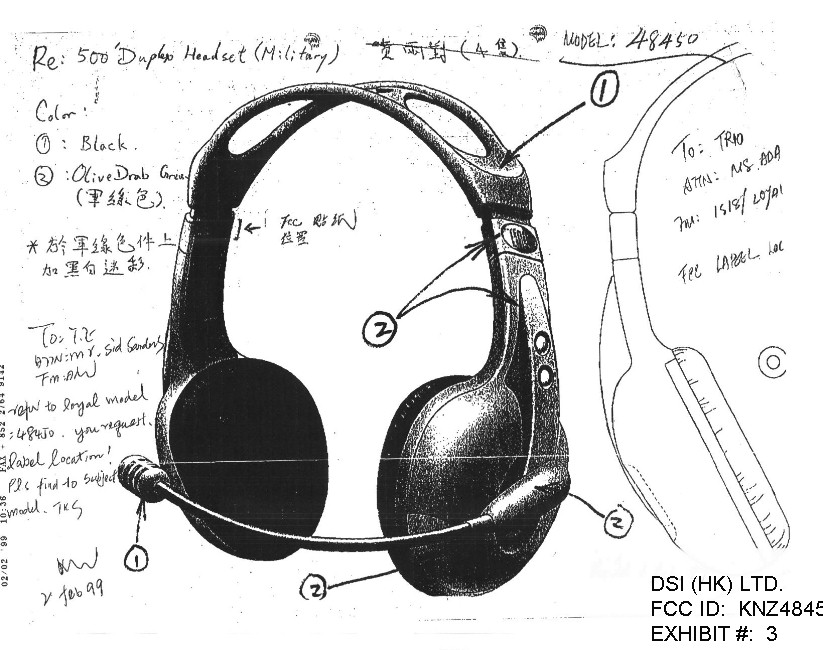 Re: 500' Duplex Headset (Military)
賣兩對 (4隻)
MODEL: 48450
Color:
① : Black.
② : Olive Drab Green
(軍綠色).
* 於軍綠色件上
加黑白迷彩.
FCC 貼紙
位置
①
②
②
①
②
To: TRIO
ATTN: MS. ADA
FM:
FCC LABEL LOC
To: T.E
ATTN: Mr. Sid Sanders
Fm:
refer to loyal model
: 48450. you request.
label location!
Pls find to subject
model. TKS
2 Feb 99
02/02 '99 10:36 FAX 852 2764 9142
DSI (HK) LTD.
FCC ID: KNZ4845
EXHIBIT #: 3